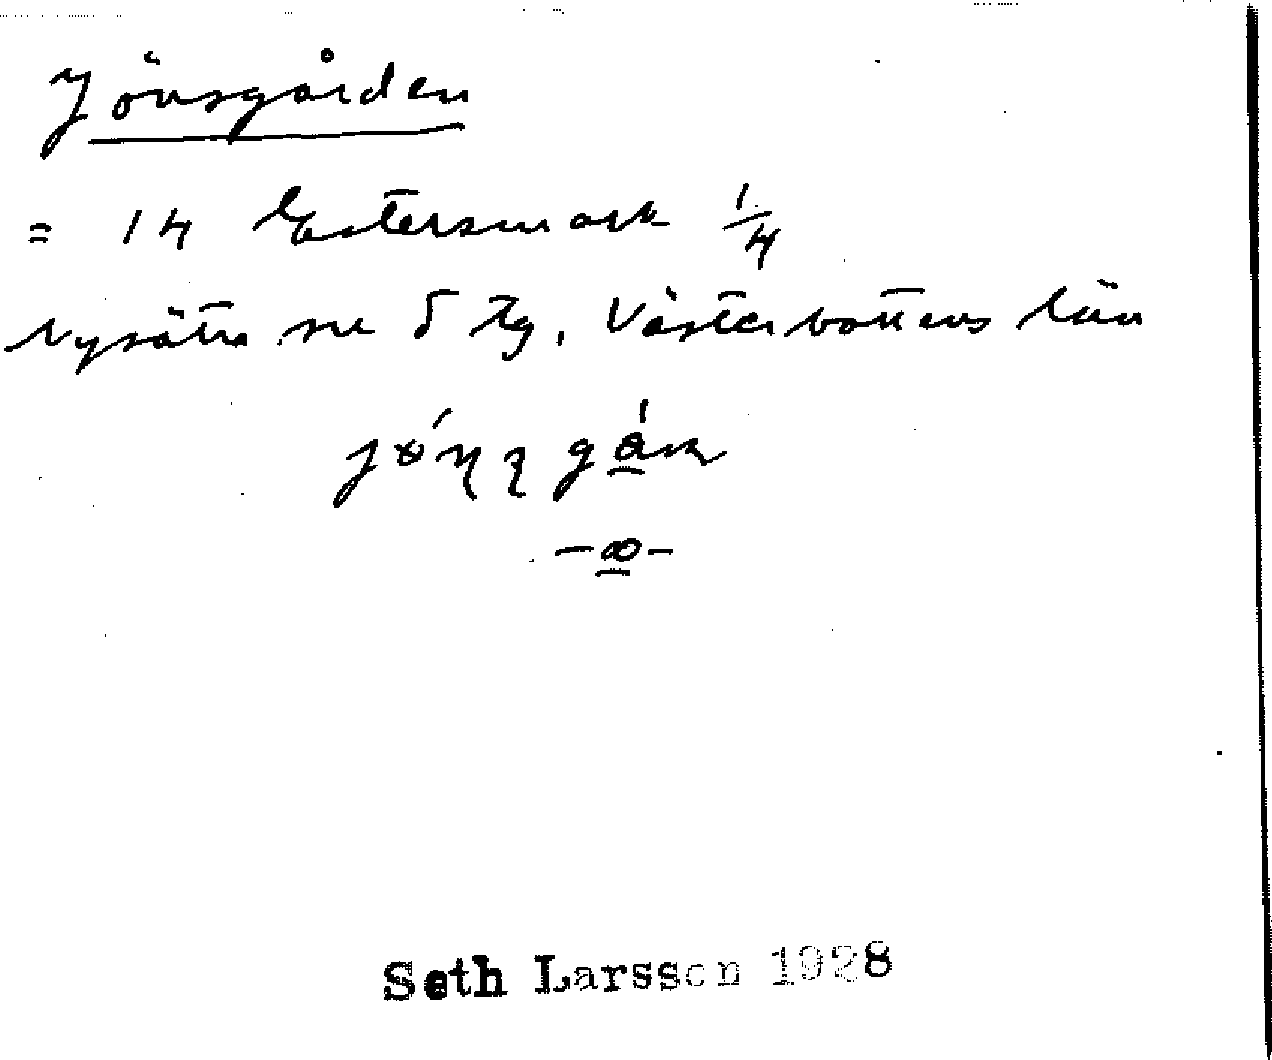 Jönsgården
= 14 Estersmark 1/4
Nysätra sn S tg, Västerbottens län
Seth Larsson 1928